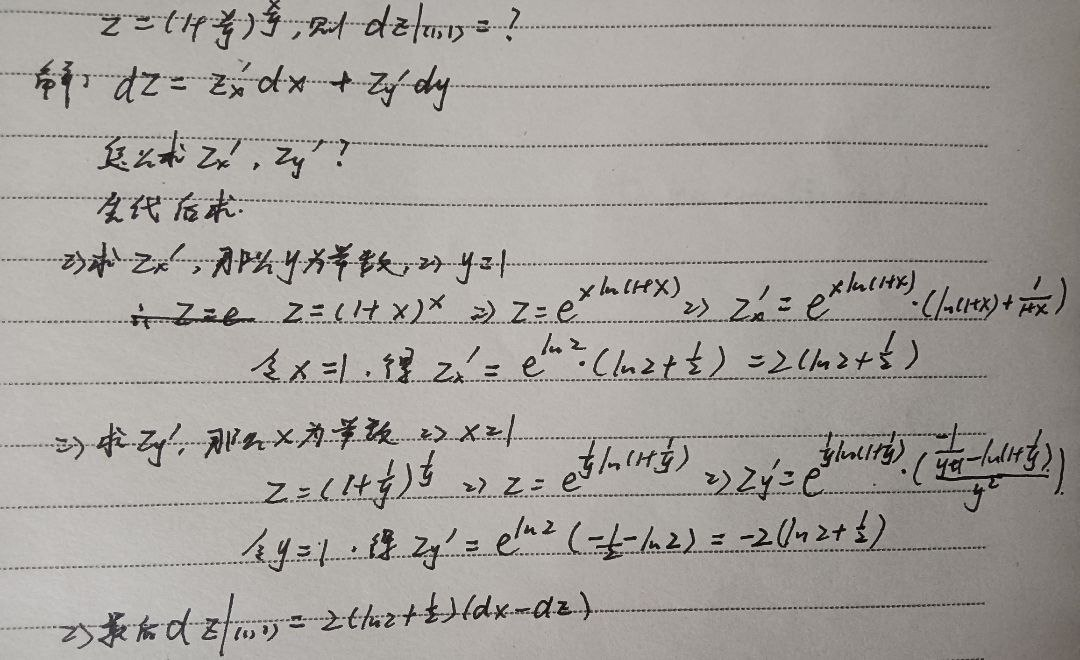 z = (1+x/y)^(x/y), 则 dz|(1,1) = ?
解: dz = zx′dx + zy′dy
怎么求 zx′, zy′?
先代后求.
=> 求 zx′, 那么 y 为常数, => y=1
z = (1+x)^x => z = e^(xln(1+x)) => zx′ = e^(xln(1+x))·(ln(1+x) + 1/(1+x))
令 x=1. 得 zx′ = e^(ln2)·(ln2+1/2) = 2(ln2+1/2)
=> 求 zy′, 那么 x 为常数 => x=1
z = (1+1/y)^(1/y) => z = e^(1/y ln(1+1/y)) => zy′ = e^(1/y ln(1+1/y))·((-1/(y+1) - ln(1+1/y))/y²)
令 y=1. 得 zy′ = e^(ln2)(-1/2-ln2) = -2(ln2+1/2)
=> 最后 dz|(1,1) = 2(ln2+1/2)(dx-dz)